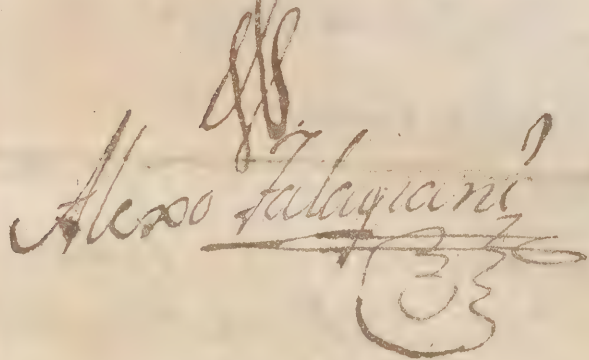 Alexo Falagiani